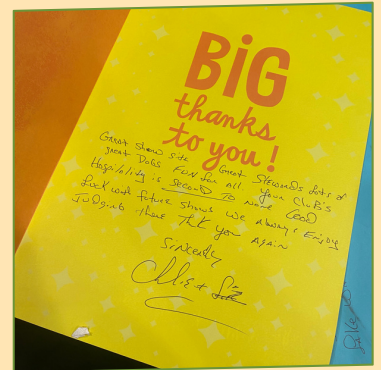 BiG
thanks
to you!
Great Show site Great Stewards Lots of
great Dogs FUN for all Your Club's
Hospitality is SECOND TO None Good
Luck with future shows we always Enjoy
Judging there Thk you Again
Sincerely